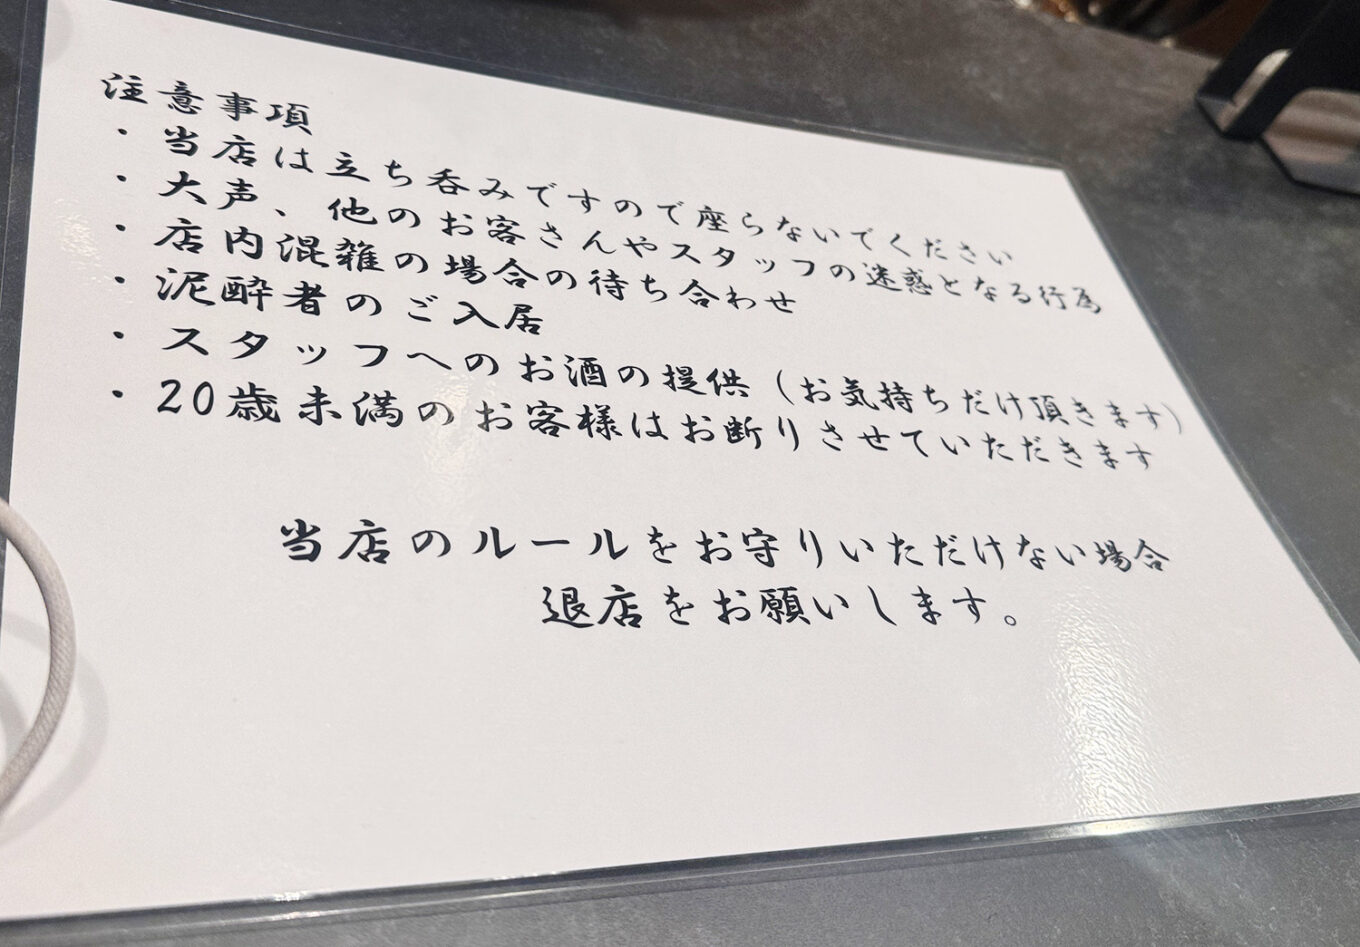 注意事項
・当店は立ち呑みですので座らないでください
・大声、他のお客さんやスタッフの迷惑となる行為
・店内混雑の場合の待ち合わせ
・泥酔者のご入居
・スタッフへのお酒の提供（お気持ちだけ頂きます）
・20歳未満のお客様はお断りさせていただきます
当店のルールをお守りいただけない場合
退店をお願いします。